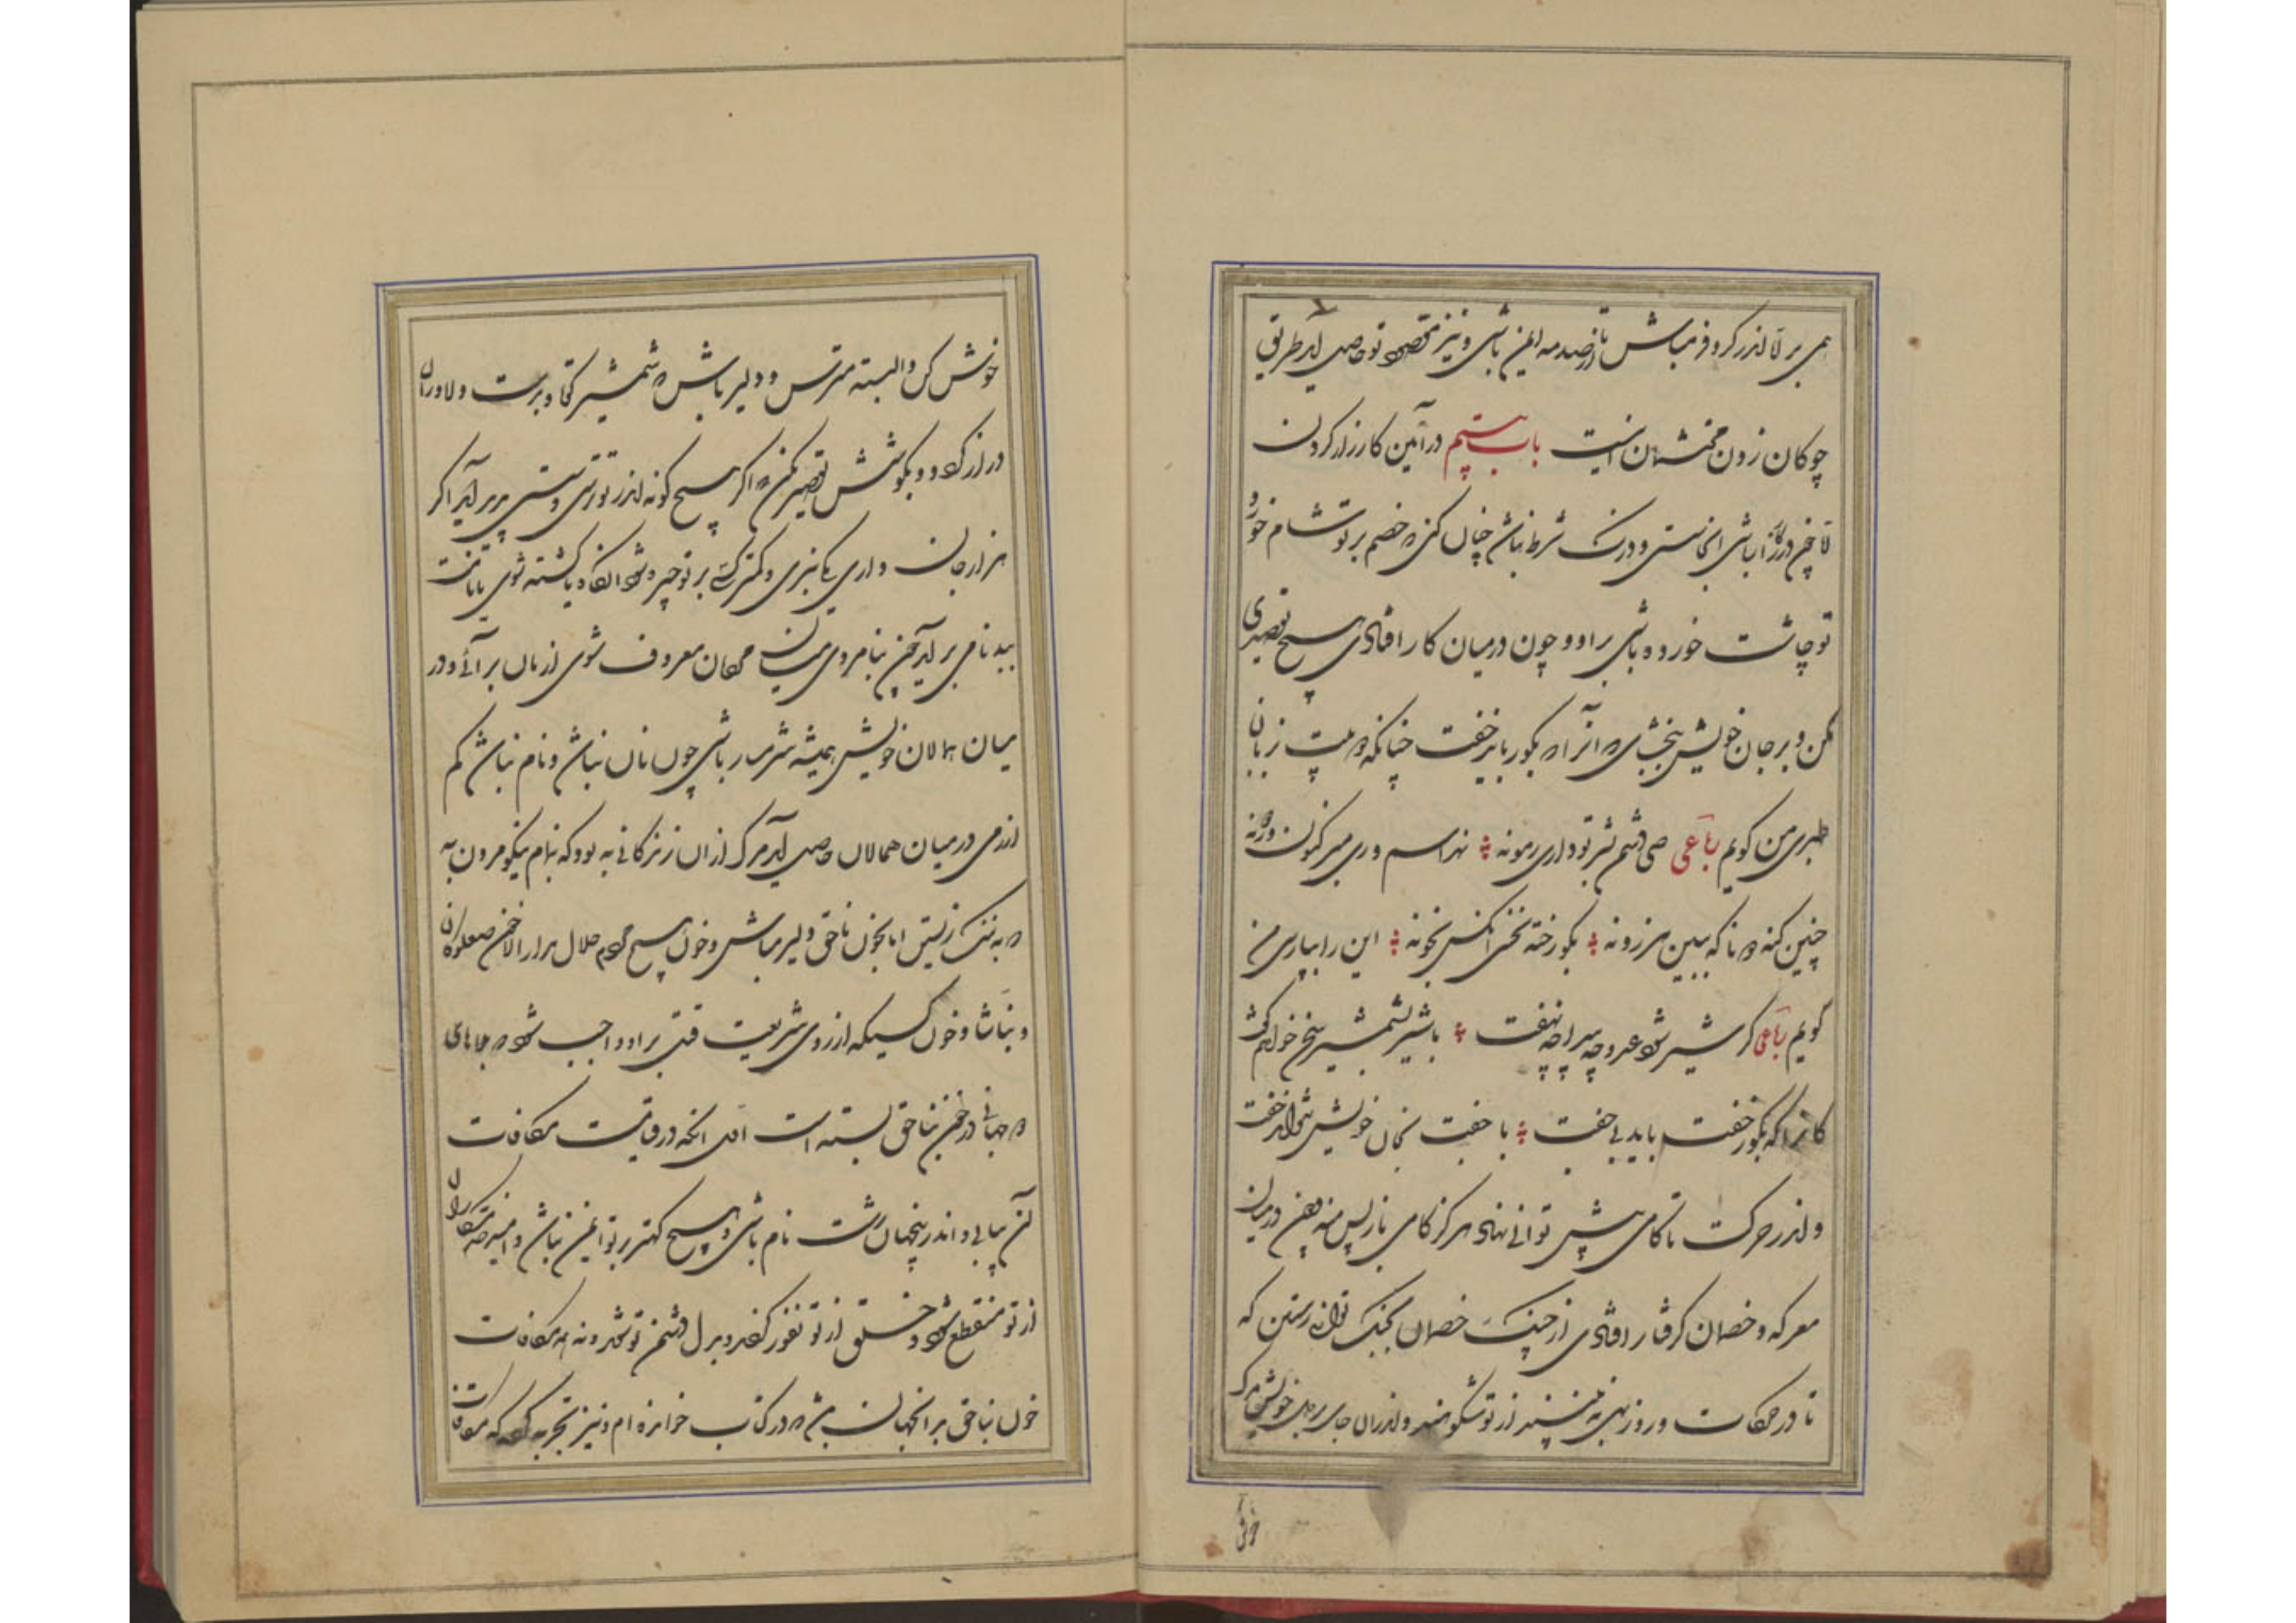 همی بر تا اندر کر و فر مباش تا از صدمه ایمن باشی و نیز مقصود تو حاصل آید طریق
چوکان زدن محتشمان اینست باب بیستم در آئین کارزار کردن
تا چون در کارزار باشی آنجا سستی و درنگ شرط نباشد چنان کن که خصم بر تو شام خورد
تو چاشت خورده باشی بر او و چون در میان کار افتادی هیچ تقصیری
مکن و بر جان خویش نبخشای که آنرا که بکور باید خفت چنانکه من بزبان
طبری من کویم رباعی می دشم شر تو داری مونه نهراسم وری میر کنون وردونه
چنین کنه که نا که ببین هرزونه بکور خته نخسی انکس بخونه این را بپارسی من
کویم رباعی کر شیر شود عدو چه پیدا چه نهفت با شیر بشمشیر سخن خواهم کفت
کانرا که بکور خفت باید بی جفت با جفت بخان خویش نتواند خفت
و اندر حرکت تا کامی پیش توانی نهاد هرکز کامی باز پس منه چون در میان
معرکه و خصمان کرفتار افتادی از چنک خصمان بجنک توان رستن که
تا در تو حرکات و روز بهی می بینند از تو شکوهند و اندران جای مرک بر دل خویش
خوش کن و البته مترس و دلیر باش که شمشیر کوتاه بدست دلاوران
دراز کردد و بکوشش تقصیر مکن که اکر هیچ کونه اندر تو ترسی و سستی پدید آید اکر
هزار جان داری یکی نبری و کمترکسی بر تو چیره شود آنکاه یا کشته شوی یا نامت
ببدنامی بر آید چون بنامردی در میان مردمان معروف شوی از نان بر آئی و در
میان همالان خویش همیشه شرمسار باشی چون نان نباشد و نام نباشد کم
ازرمی در میان همالان حاصل آید مرک از ان زندکانی به بود که بنام نیکو مردن به
که به ننک زیستن اما بخون ناحق دلیر مباش و خون هیچ مردم حلال مدار الا خون صعلوکان
و نباشان و خون کسیکه از روی شریعت قتل بر او واجب شود که بلاهای
دو جهانی در خون بناحق بسته است اول آنکه در قیامت مکافات
آن بیابی و اندر ینجهان زشت نام باشی و هیچ کهتر بر تو ایمن نباشد و امید خدمتکاران
از تو منقطع شود و خلق از تو نفور کردند و بدل دشمن تو شوند و نه همه مکافات
خون بناحق بدانجهان باشد که در کتب خوانده ام و نیز تجربه کرده که مکافات